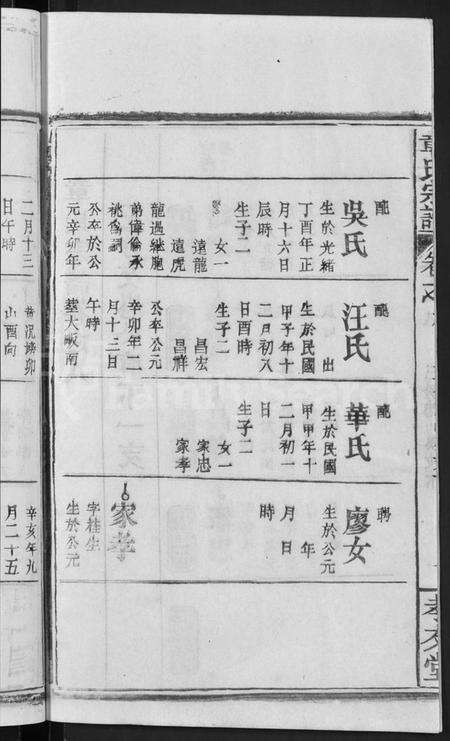 章氏宗譜
孝友堂
配
吳氏
生於光緒
丁酉年正
月十六日
辰時
生子二
遠龍
遠虎
女一
龍過繼胞
弟偉倫承
祧為嗣
公卒於公
元辛卯年
配
汪氏
出
生於民國
甲子年十
二月初八
日酉時
生子二
昌宏
昌祥
公卒公元
辛卯年二
月十三日
午時
墓大畈南
配
華氏
生於民國
甲甲年十
二月初一
日
生子二
家忠
家孝
女一
聘
廖女
生於公元
年
月 日
時
家孝
字桂生
生於公元
二月十三
日午時
山酉向
辛亥年九
月二十五